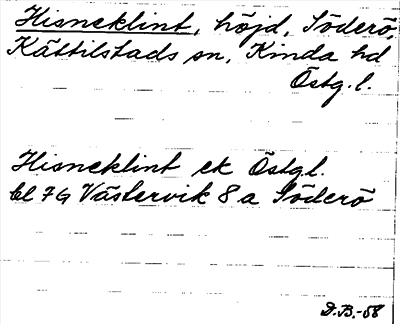 Hisneklint, höjd, Söderö,
Kättilstads sn, Kinda hd
Östg.l.
Hisneklint ek Östgl.
bl 7G Västervik 8 a Söderö
D.B.-58